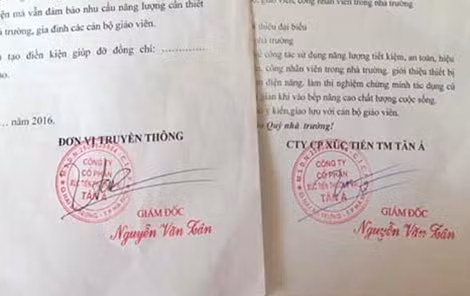 iện mà vẫn đảm bảo nhu cầu năng lượng cần thiết
trường, gia đình các cán bộ giáo viên.
tạo điều kiện giúp đỡ đồng chí:
... năm 2016.
ĐƠN VỊ TRUYỀN THÔNG
CÔNG TY
CỔ PHẦN
XÚC TIẾN THƯƠNG MẠI
TÂN Á
GIÁM ĐỐC
Nguyễn Văn Tấn
công nhân viên trong nhà trường
thiệu đại biểu
nhà trường
công tác sử dụng năng lượng tiết kiệm, an toàn, hiệu
công nhân viên trong nhà trường. giới thiệu thiết bị
điện năng. làm thí nghiệm chứng minh tác dụng cũ
gian khi vào bếp nâng cao chất lượng cuộc sống.
ý kiến,giao lưu với cán bộ giáo viên.
Quý nhà trường!
CTY CP XÚC TIẾN TM TÂN Á
CÔNG TY
CỔ PHẦN
TÂN Á
GIÁM ĐỐC
Nguyễn Văn Tấn